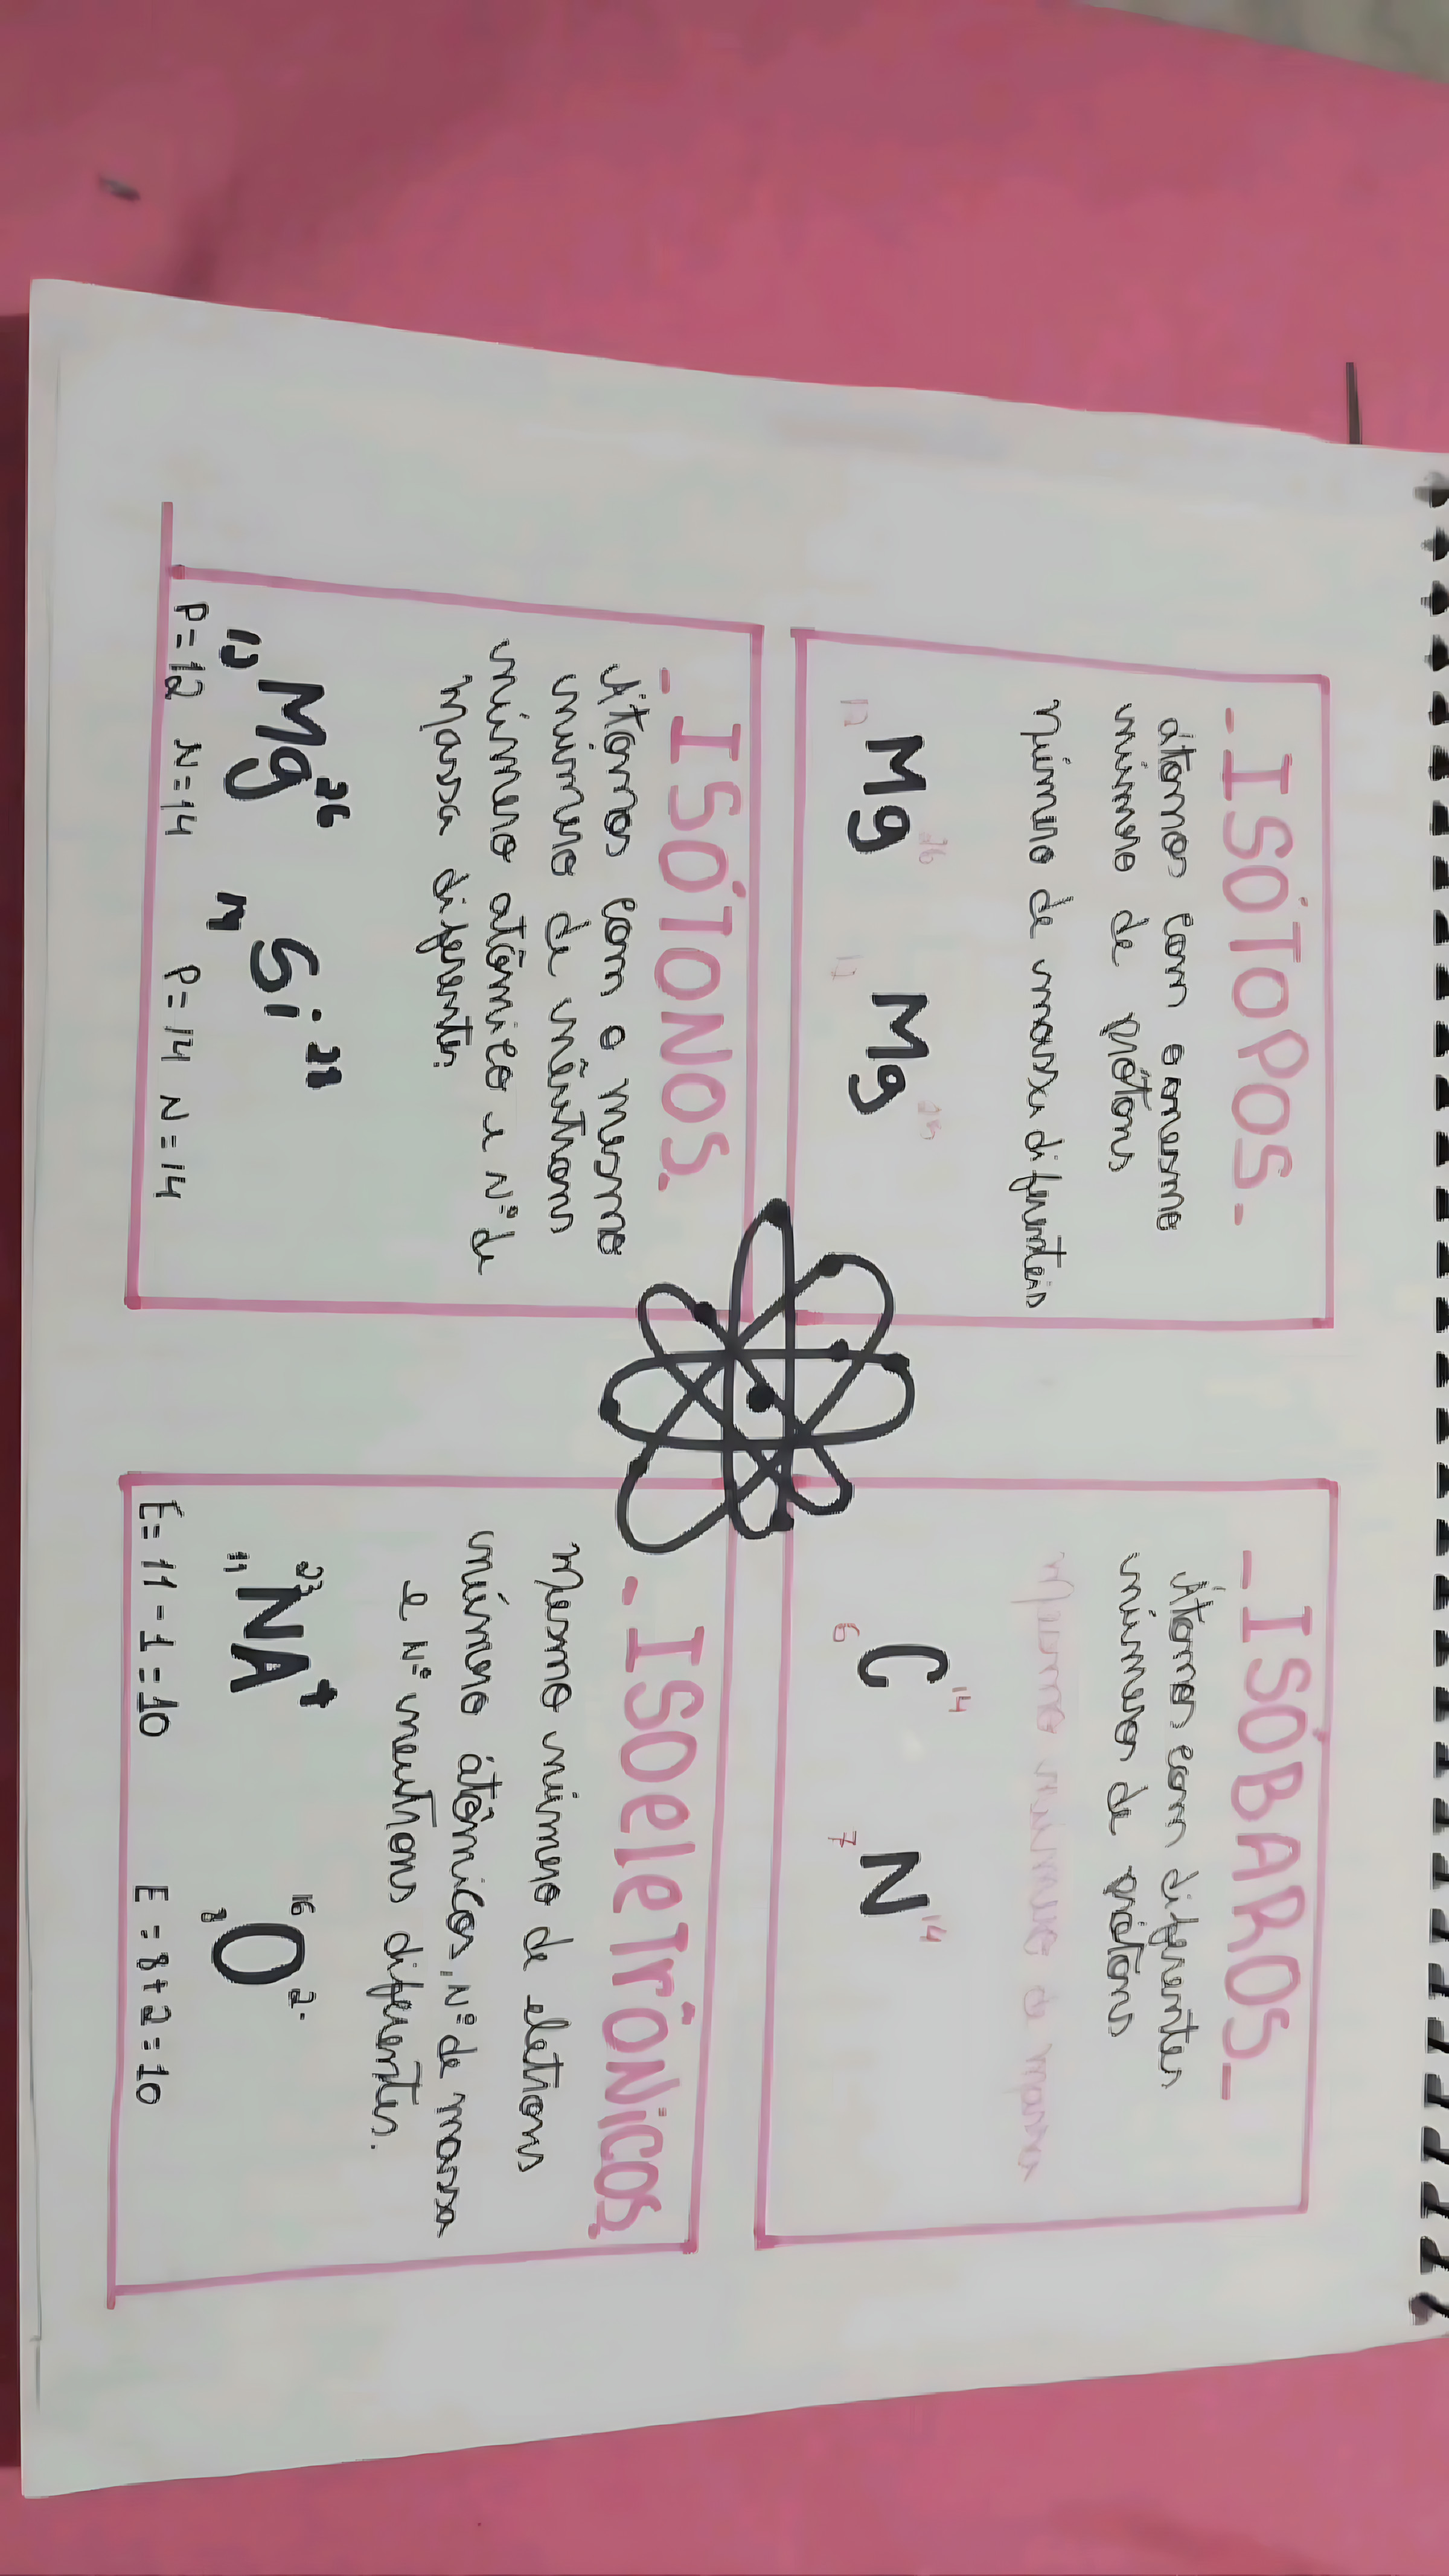 - ISÓTOPOS -
átomos com o mesmo
número de prótons
número de massa diferentes
12 Mg 26 12 Mg
- ISÓBAROS -
Átomos com diferentes
números de prótons
Mesmo número de massa
6 C 14 7 N 14
- ISÓTONOS.-
Átomos com o mesmo
número de nêutrons
número atômico e Nº de
Massa diferentes.
12 Mg 26 14 Si 28
P=12 N=14 P=14 N=14
- ISOeleTrôNicos
Mesmo número de eletrons
número atômicos, Nº de massa
e Nº neutrons diferentes.
23 11 NA + 16 8 O 2-
E=11-1=10 E=8+2=10